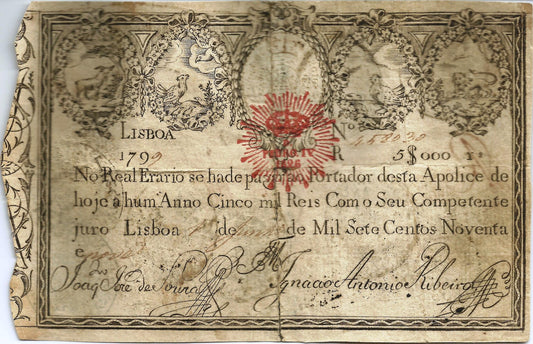 LISBOA Nº
1799 R 5$000 rs
PEDRO IV
1826
No Real Erario se hade pagar ao Portador desta Apolice de
hoje a hum Anno Cinco mil Reis Com o Seu Competente
juro Lisboa de de Mil Sete Centos Noventa
e nove
Joaq Jose de Souza Ignacio Antonio Ribeiro